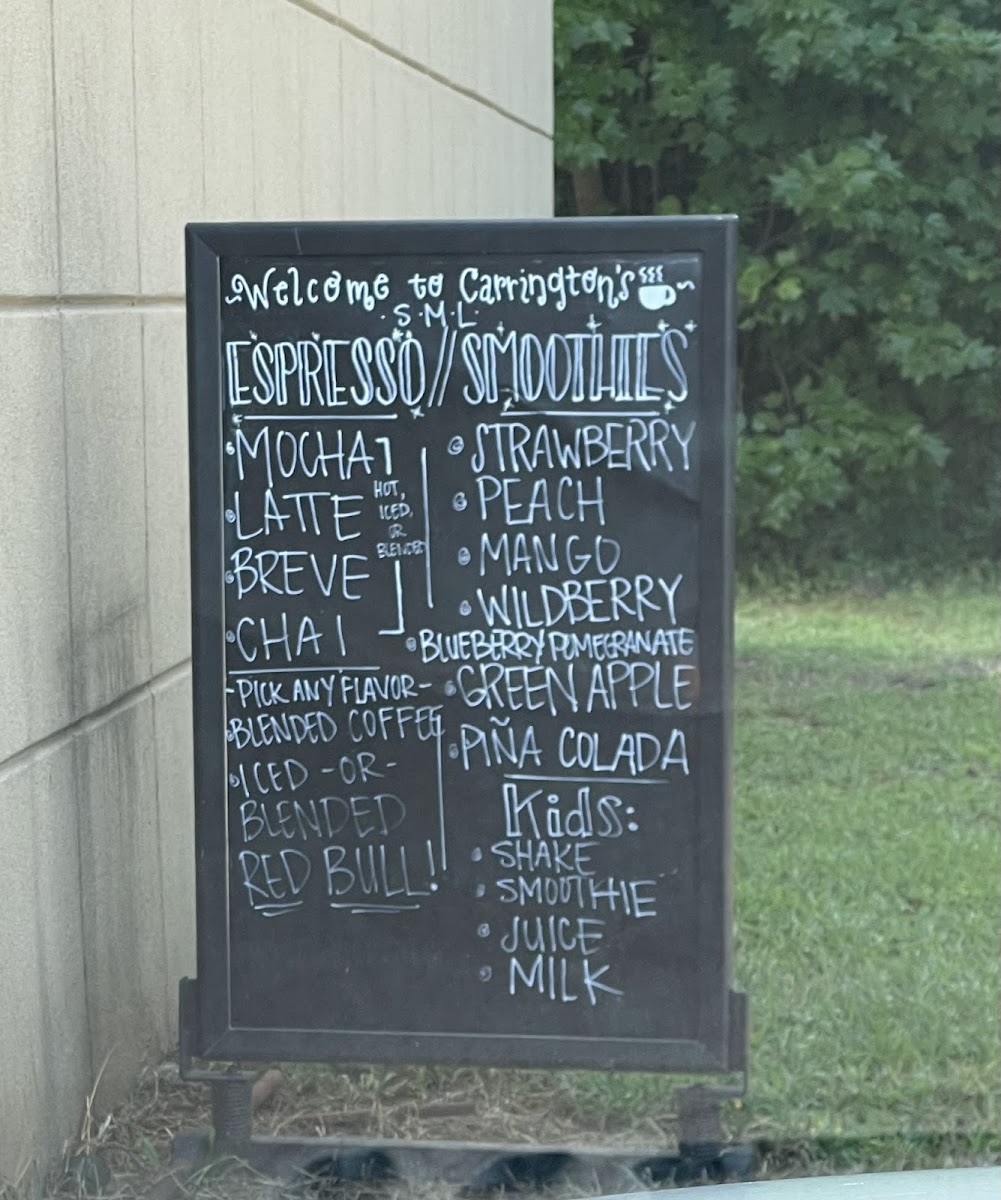 Welcome to Carrington's
· S · M · L ·
ESPRESSO // SMOOTHIES
• MOCHA
• LATTE
• BREVE
• CHAI
HOT,
ICED,
OR
BLENDED
-PICK ANY FLAVOR-
• BLENDED COFFEE
• ICED -OR-
BLENDED
RED BULL!
• STRAWBERRY
• PEACH
• MANGO
• WILDBERRY
• BLUEBERRY POMEGRANATE
• GREEN APPLE
• PIÑA COLADA
Kids:
• SHAKE
• SMOOTHIE
• JUICE
• MILK